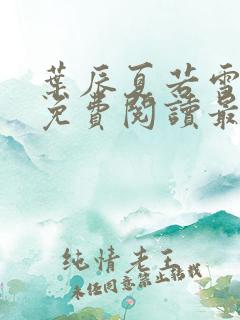 葉辰夏若雪
免費閱讀最
純情老王
未經同意禁止轉載